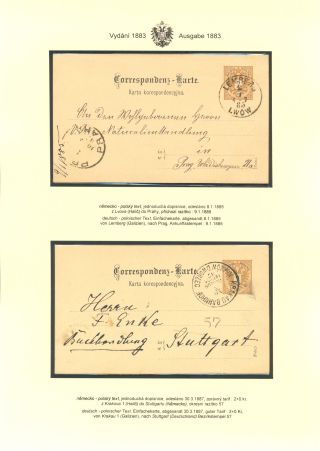 Vydání 1883 Ausgabe 1883
Correspondenz-Karte.
Karta korespondencyjna.
LEMBERG
LWÓW
An den Wohlgeborenen Herrn
Naturalienhandlung
in
Prag
německo - polský text, jednoduchá dopisnice, odesláno 8.1.1885
z Lvova (Halič) do Prahy, příchozí razítko : 9.1.1885
deutsch - polnischer Text, Einfachekarte, abgesandt 8.1.1885
von Lemberg (Galizien), nach Prag, Ankunftsstempel : 9.1.1885
Correspondenz-Karte.
Karta korespondencyjna.
Herrn
F. Enke
57
Buchhandlung Stuttgart
německo - polský text, jednoduchá dopisnice, odesláno 30.3.1887, správný tarif : 2+0 Kr.
z Krakova 1 (Halič) do Stuttgartu (Německo), okresní razítko 57
deutsch - polnischer Text, Einfachekarte, abgesandt 30.3.1887, guter Tarif : 2+0 Kr.
von Krakau 1 (Galizien), nach Stuttgart (Deutschland) Bezirkstempel 57